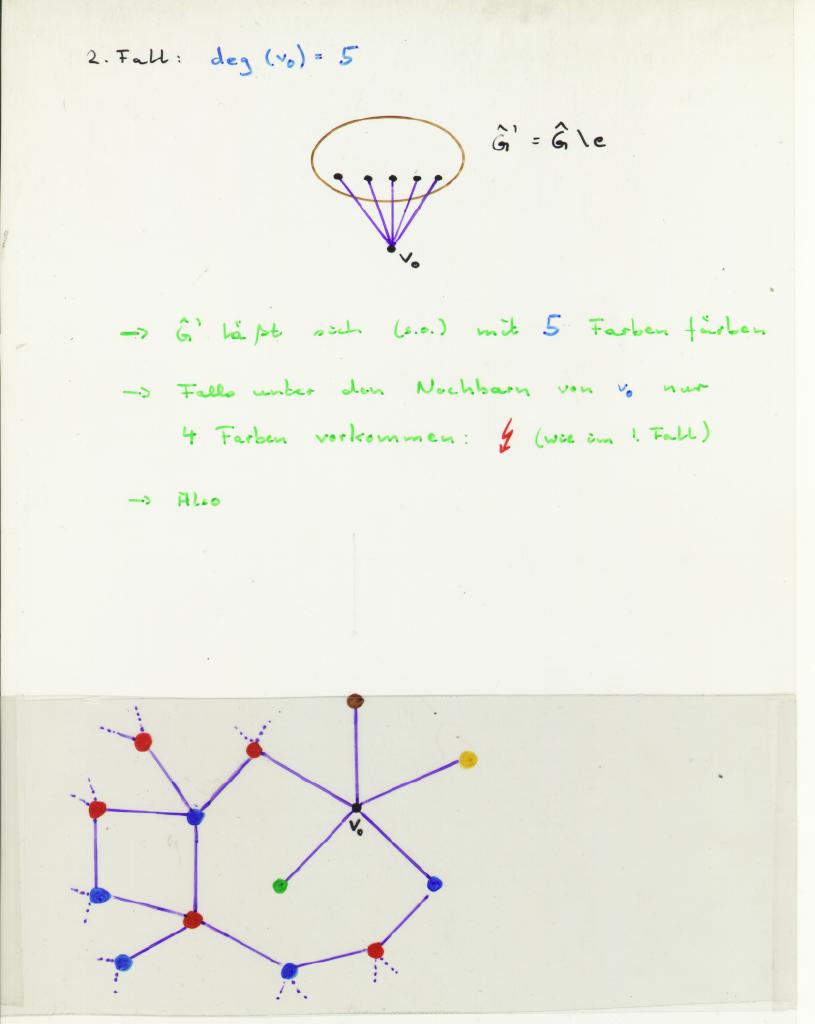 2. Fall: deg (v₀) = 5
Ĝ' = Ĝ \ e
v₀
→ Ĝ' läßt sich (s.o.) mit 5 Farben färben
→ Falls unter den Nachbarn von v₀ nur
4 Farben vorkommen: ↯ (wie im 1. Fall)
→ Also
v₀